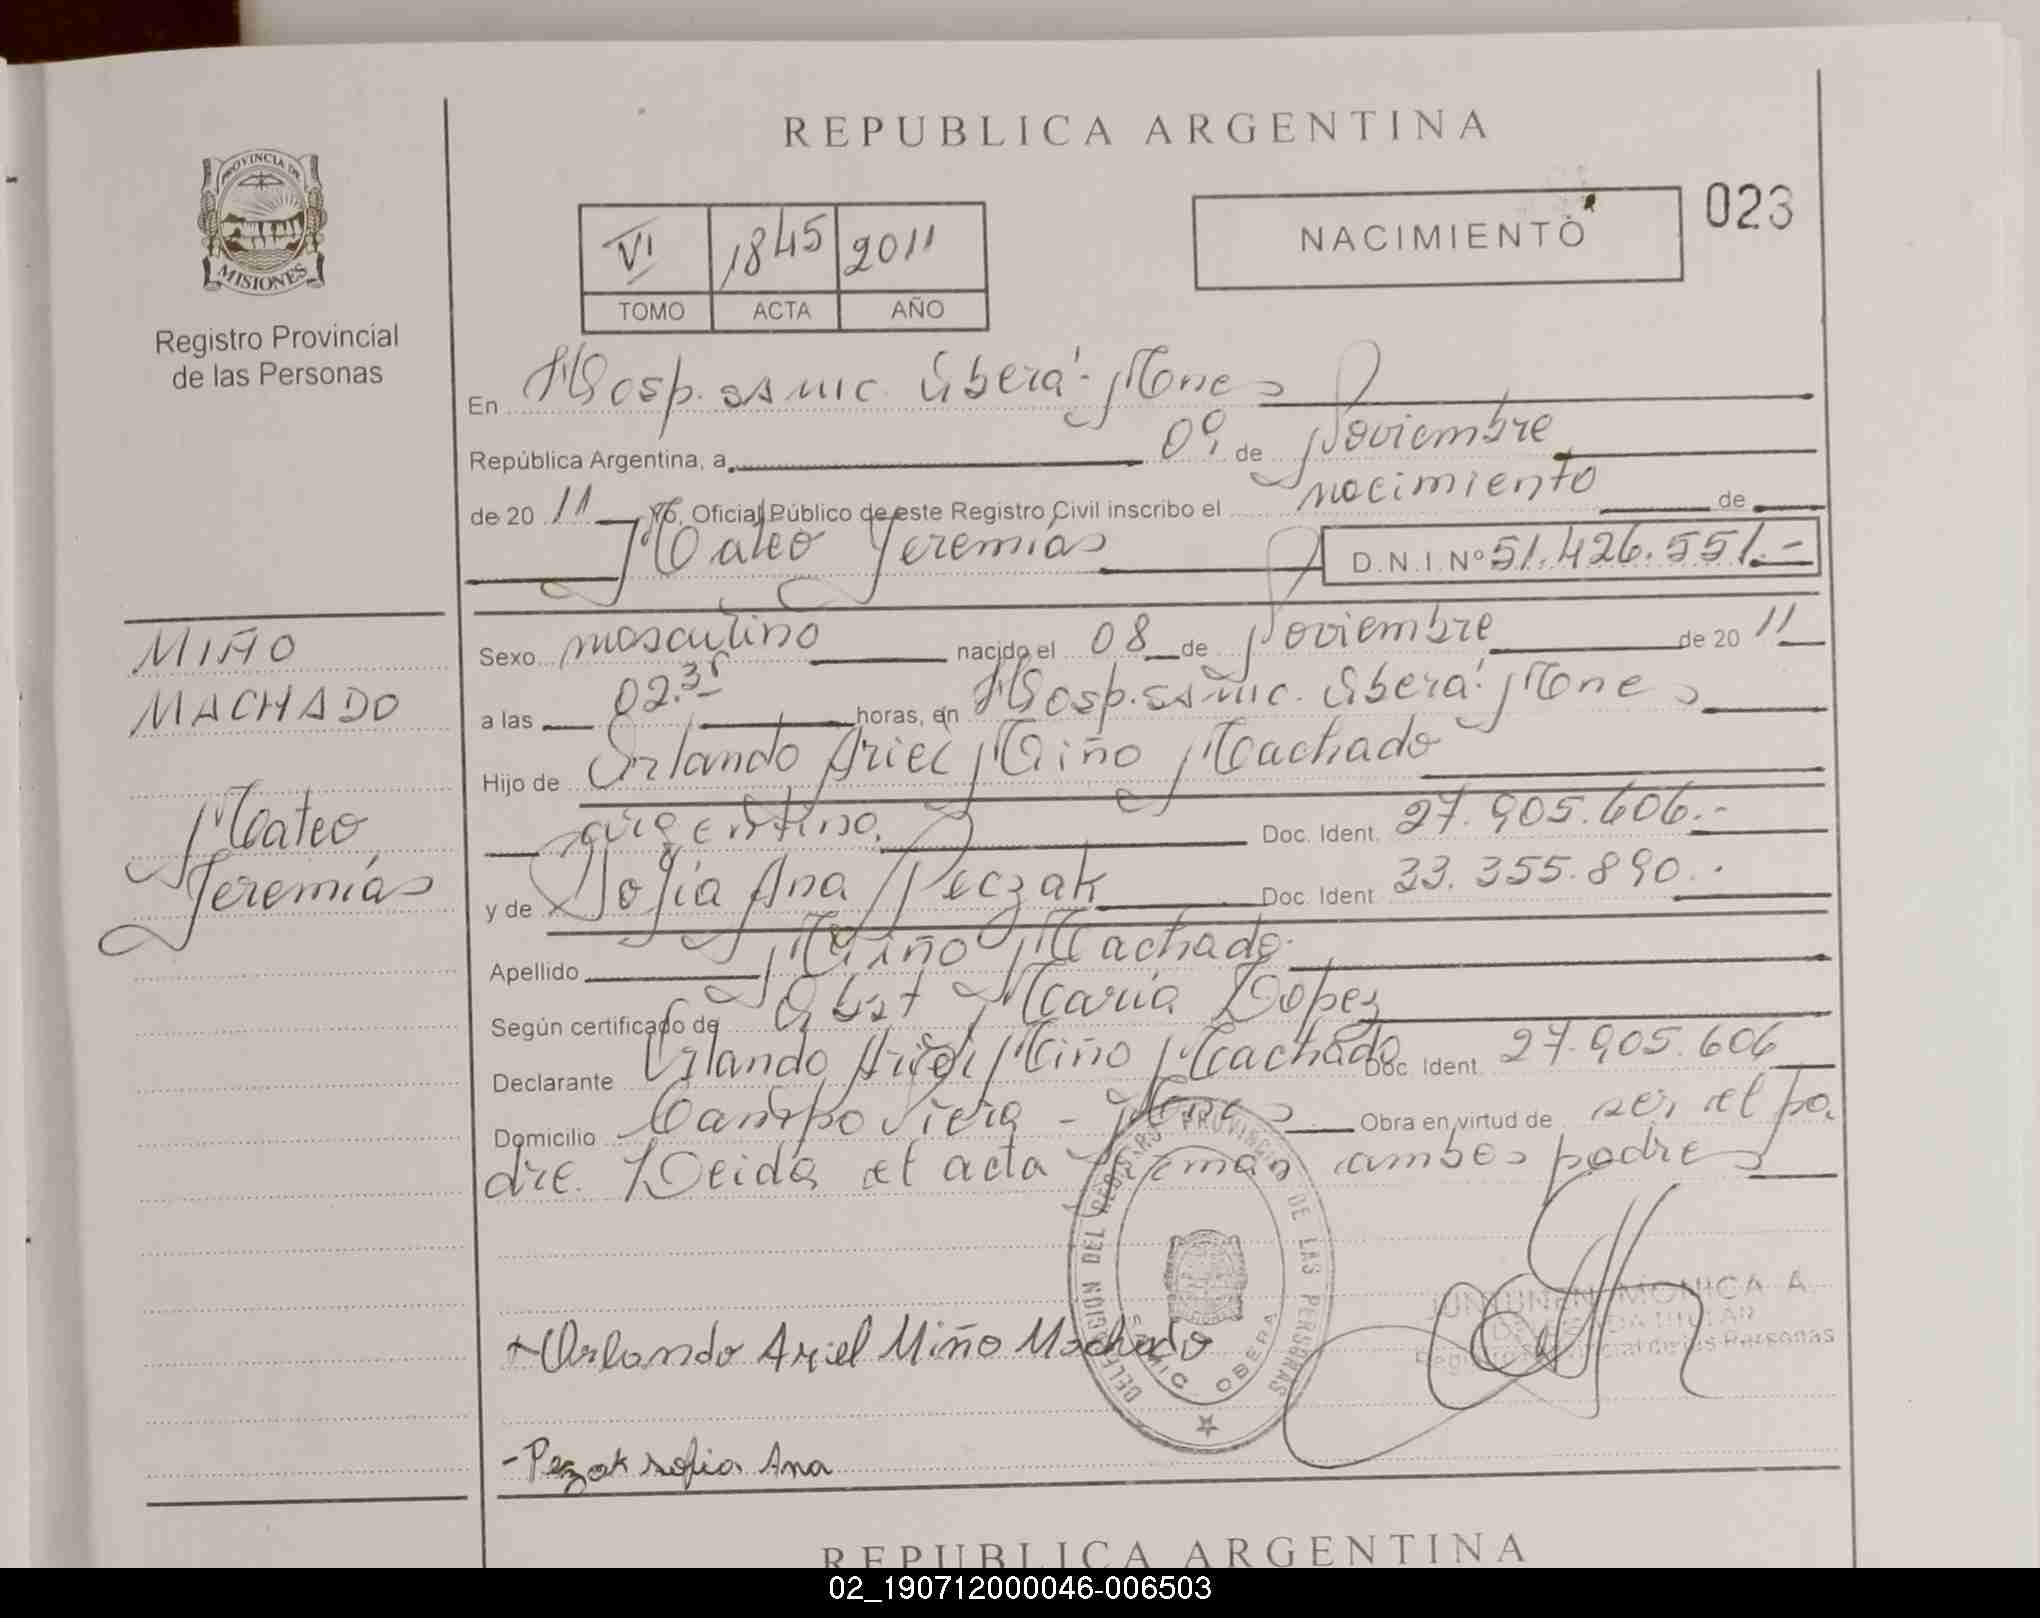 REPUBLICA ARGENTINA
PROVINCIA DE
MISIONES
Registro Provincial
de las Personas
VI 1845 2011
TOMO ACTA AÑO
NACIMIENTO
023
En Hosp. SAMIC. Oberá - Mones
República Argentina, a 09 de Noviembre
de 20 11 Yo, Oficial Público de este Registro Civil inscribo el nacimiento de
Mateo Jeremías D.N.I. Nº 51.426.551.-
MIÑO
MACHADO
Mateo
Jeremías
Sexo masculino nacido el 08 de Noviembre de 20 11
a las 02.35 horas, en Hosp. SAMIC. Oberá - Mones
Hijo de Orlando Ariel Miño Machado
argentino. Doc. Ident. 27.905.606.-
y de Sofía Ana Peczak Doc. Ident 33.355.890.-
Apellido Miño Machado.
Según certificado de Obst María Lopez
Declarante Orlando Ariel Miño Machado Doc. Ident. 27.905.606
Domicilio Campo Viera - Mones Obra en virtud de ser el pa.
dre. Leida el acta firman ambos padres
DELEGACION DEL REGISTRO PROVINCIAL DE LAS PERSONAS
SAMIC OBERA
MONICA A.
Registro Provincial de las Personas
Orlando Ariel Miño Machado
- Pezak sofia Ana
REPUBLICA ARGENTINA
02_190712000046-006503